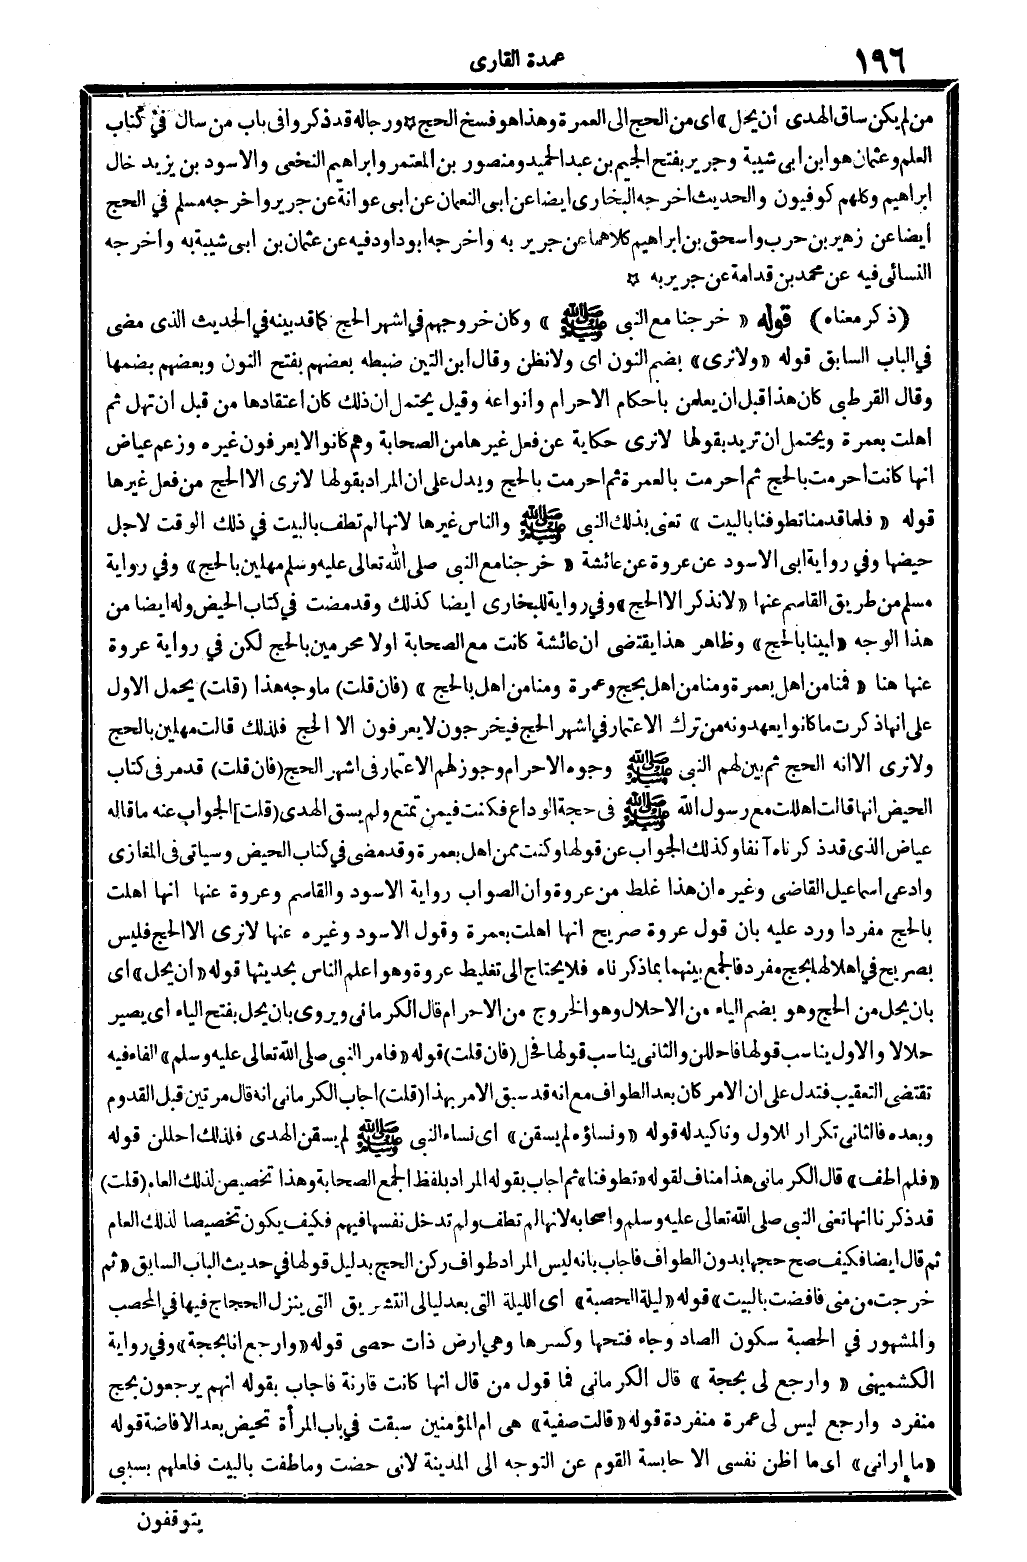 ١٩٦
عمدة القارى
من لم يكن ساق الهدى أن يحل» اى من الحج الى العمرة وهذا هو فسخ الحج ✩ ورجاله قد ذكروا فى باب من سال فى كتاب
العلم وعثمان هو ابن ابى شيبة وجرير بفتح الجيم بن عبد الحميد ومنصور بن المعتمر وابراهيم النخعى والاسود بن يزيد خال
ابراهيم وكلهم كوفيون والحديث اخرجه البخارى ايضا عن ابى النعمان عن ابى عوانة عن جرير واخرجه مسلم في الحج
أيضا عن زهير بن حرب واسحق بن ابراهيم كلاهما عن جرير به واخرجه ابو داود فيه عن عثمان بن ابى شيبة به واخرجه
النسائى فيه عن محمد بن قدامة عن جرير به ✩
(ذكر معناه) قوله «خرجنا مع النبى ﷺ» وكان خروجهم في اشهر الحج كما قد بينه في الحديث الذى مضى
في الباب السابق قوله «ولانرى» بضم النون اى ولانظن وقال ابن التين ضبطه بعضهم بفتح النون وبعضهم بضمها
وقال القرطبى كان هذا قبل ان يعلمن بأحكام الاحرام وأنواعه وقيل يحتمل ان ذلك كان اعتقادها من قبل أن تهل ثم
اهلت بعمرة ويحتمل ان تريد بقولها لانرى حكاية عن فعل غيرها من الصحابة وهم كانوا لا يعرفون غيره وزعم عياض
انها كانت أحرمت بالحج ثم احرمت بالعمرة ثم احرمت بالحج ويدل على ان المراد بقولها لانرى الا الحج من فعل غيرها
قوله «فلما قدمنا تطوفنا بالبيت» تعنى بذلك النبى ﷺ والناس غيرها لانها لم تطف بالبيت في ذلك الوقت لاجل
حيضها وفي رواية ابى الاسود عن عروة عن عائشة «خرجنا مع النبى صلى الله تعالى عليه وسلم مهلين بالحج» وفي رواية
مسلم من طريق القاسم عنها «لانذكر الا الحج» وفي رواية للبخارى ايضا كذلك وقد مضت في كتاب الحيض وله ايضا من
هذا الوجه «لبينا بالحج» وظاهر هذا يقتضى ان عائشة كانت مع الصحابة اولا محرمين بالحج لكن في رواية عروة
عنها هنا «فمنا من اهل بعمرة ومنا من اهل بحج وعمرة ومنا من اهل بالحج» (فان قلت) ما وجه هذا (قلت) يحمل الاول
على انها ذكرت ما كانوا يعهدونه من ترك الاعتمار في اشهر الحج فيخرجون لا يعرفون الا الحج فلذلك قالت مهلين بالحج
ولانرى الا انه الحج ثم بين لهم النبى ﷺ وجوه الاحرام وجوز لهم الاعتمار فى اشهر الحج (فان قلت) قد مر فى كتاب
الحيض انها قالت اهللت مع رسول الله ﷺ فى حجة الوداع فكنت فيمن تمتع ولم يسق الهدى (قلت] الجواب عنه ما قاله
عياض الذى قد ذكرناه آنفا وكذلك الجواب عن قولها وكنت ممن اهل بعمرة وقد مضى في كتاب الحيض وسياتى فى المغازى
وادعى اسماعيل القاضى وغيره ان هذا غلط من عروة وان الصواب رواية الاسود والقاسم وعروة عنها انها اهلت
بالحج مفردا ورد عليه بان قول عروة صريح انها اهلت بعمرة وقول الاسود وغيره عنها لانرى الا الحج فليس
بصريح في اهلالها بحج مفرد فالجمع بينهما بما ذكرناه فلا يحتاج الى تغليط عروة وهو اعلم الناس بحديثها قوله «ان يحل» اى
بان يحل من الحج وهو بضم الياء من الاحلال وهو الخروج من الاحرام قال الكرمانى ويروى بان يحل بفتح الياء اى يصير
حلالا والاول يناسب قولها فاحللن والثانى يناسب قولها فحل (فان قلت) قوله «فامر النبى صلى الله تعالى عليه وسلم» الفاء فيه
تقتضى التعقيب فتدل على ان الامر كان بعد الطواف مع انه قد سبق الامر بهذا (قلت) اجاب الكرمانى انه قال مرتين قبل القدوم
وبعده فالثانى تكرار للاول وتاكيد له قوله «ونساؤه لم يسقن» اى نساء النبى ﷺ لم يسقن الهدى فلذلك احللن قوله
«فلم اطف» قال الكرمانى هذا مناف لقوله «تطوفنا» ثم اجاب بقوله المراد بلفظ الجمع الصحابة وهذا تخصيص لذلك العام (قلت)
قد ذكرنا انها تعنى النبى صلى الله تعالى عليه وسلم واصحابه لانها لم تطف ولم تدخل نفسها فيهم فكيف يكون تخصيصا لذلك العام
ثم قال ايضا فكيف صح حجها بدون الطواف فاجاب بانه ليس المراد طواف ركن الحج بدليل قولها في حديث الباب السابق «ثم
خرجت من منى فافضت بالبيت» قوله «ليلة الحصبة» اى الليلة التى بعد ليالى التشريق التى ينزل الحجاج فيها في المحصب
والمشهور في الحصبة سكون الصاد وجاء فتحها وكسرها وهي ارض ذات حصى قوله «وارجع انا بحجة» وفي رواية
الكشميهنى «وارجع لى بحجة» قال الكرمانى فما قول من قال انها كانت قارنة فاجاب بقوله انهم يرجعون بحج
منفرد وارجع ليس لى عمرة منفردة قوله «قالت صفية» هى ام المؤمنين سبقت في باب المرأة تحيض بعد الافاضة قوله
«ما ارانى» اى ما اظن نفسى الا حابسة القوم عن التوجه الى المدينة لانى حضت وما طفت بالبيت فلعلهم بسببى
يتوقفون